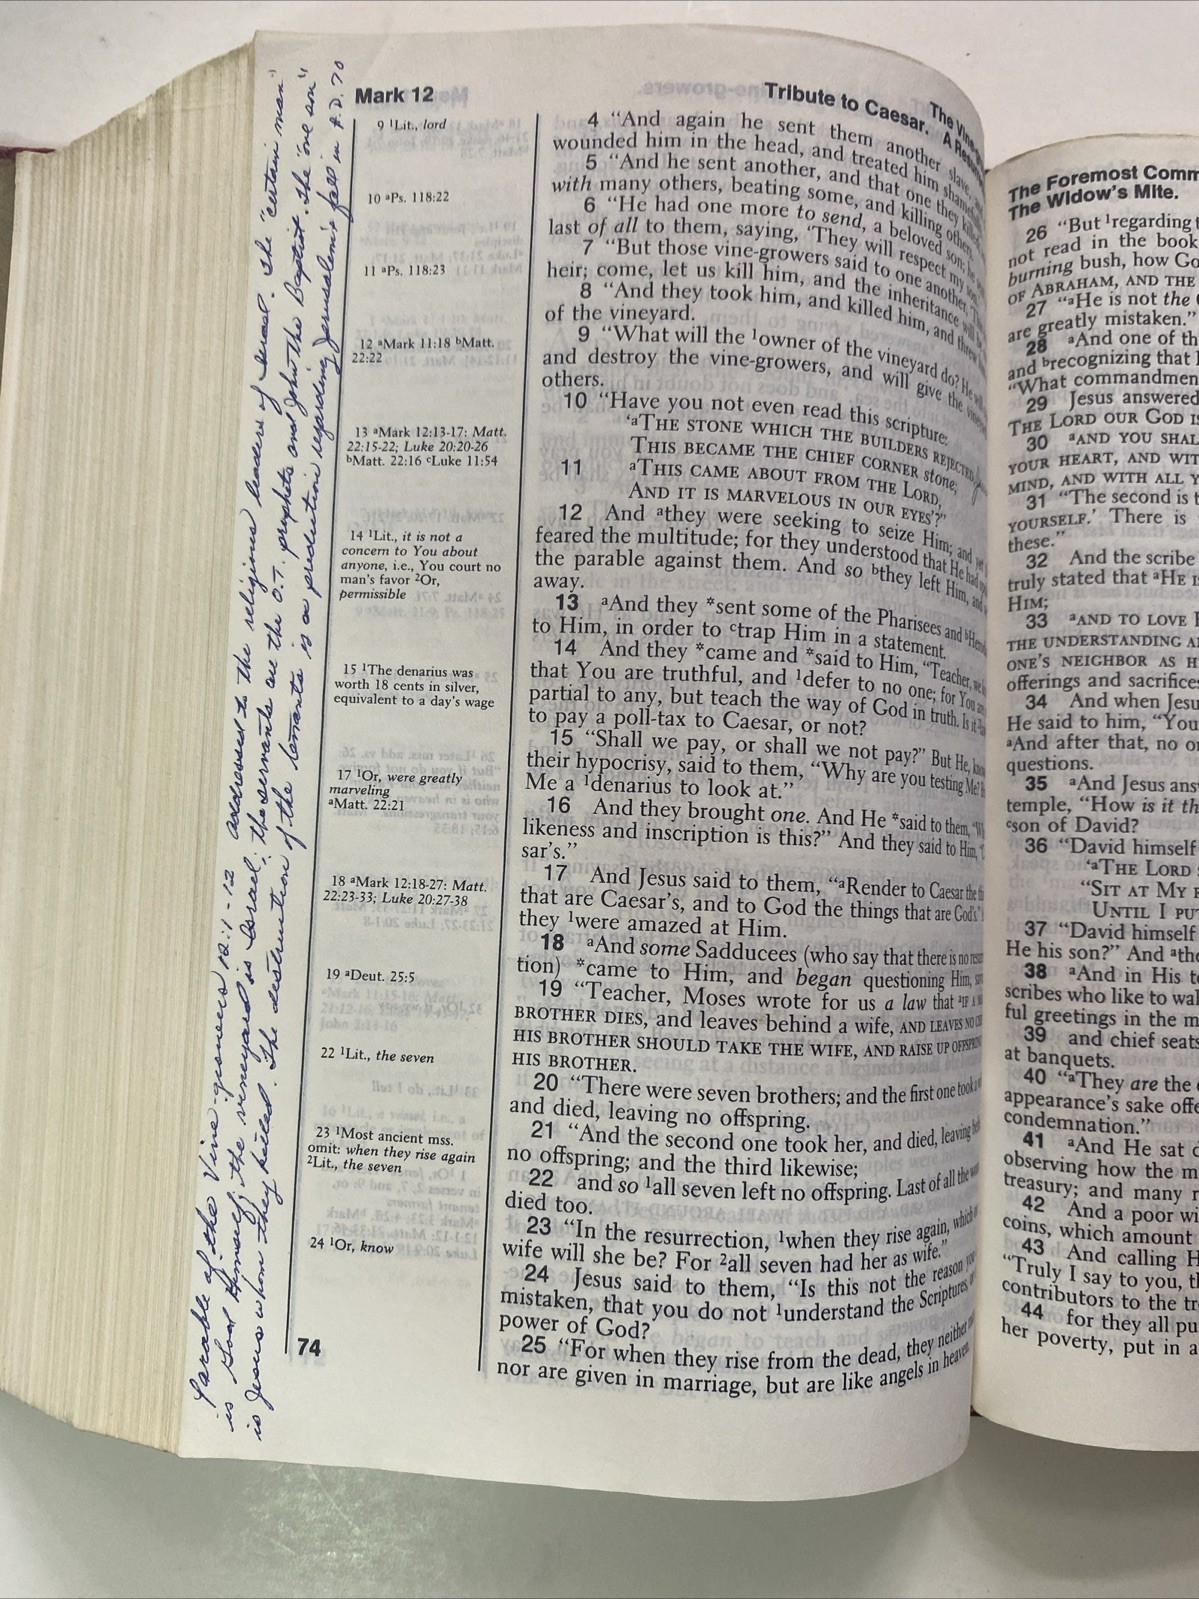 Parable of the Vine-growers 12:1-12 addressed to the religious leaders of Israel. The "certain man"
is God Himself; the vineyard is Israel; the servants are the O.T. prophets and John the Baptist. the "one son"
is Jesus whom they killed. The destruction of the tenants is a prediction regarding Jerusalem's fall in A.D. 70
Mark 12
9 ¹Lit., lord
10 ᵃPs. 118:22
11 ᵃPs. 118:23
12 ᵃMark 11:18 ᵇMatt.
22:22
13 ᵃMark 12:13-17: Matt.
22:15-22; Luke 20:20-26
ᵇMatt. 22:16 ᶜLuke 11:54
14 ¹Lit., it is not a
concern to You about
anyone, i.e., You court no
man's favor ²Or,
permissible
15 ¹The denarius was
worth 18 cents in silver,
equivalent to a day's wage
17 ¹Or, were greatly
marveling
ᵃMatt. 22:21
18 ᵃMark 12:18-27: Matt.
22:23-33; Luke 20:27-38
19 ᵃDeut. 25:5
22 ¹Lit., the seven
23 ¹Most ancient mss.
omit: when they rise again
²Lit., the seven
24 ¹Or, know
74
The
Tribute to Caesar. A
4 "And again he sent them another slave,
wounded him in the head, and treated him
5 "And he sent another, and that one they killed
with many others, beating some, and killing others.
6 "He had one more to send, a beloved son; he
last of all to them, saying, 'They will respect my son.'
7 "But those vine-growers said to one another,
heir; come, let us kill him, and the inheritance will be
8 "And they took him, and killed him, and threw
of the vineyard.
9 "What will the ¹owner of the vineyard do? He will
and destroy the vine-growers, and will give the
others.
10 "Have you not even read this scripture:
'ᵃTHE STONE WHICH THE BUILDERS REJECTED,
THIS BECAME THE CHIEF CORNER stone;
11 ᵃTHIS CAME ABOUT FROM THE LORD,
AND IT IS MARVELOUS IN OUR EYES'?"
12 And ᵃthey were seeking to seize Him; and yet
feared the multitude; for they understood that He had
the parable against them. And so ᵇthey left Him, and
away.
13 ᵃAnd they *sent some of the Pharisees and
to Him, in order to ᶜtrap Him in a statement.
14 And they *came and *said to Him, "Teacher, we
that You are truthful, and ¹defer to no one; for You are
partial to any, but teach the way of God in truth. Is it
to pay a poll-tax to Caesar, or not?
15 "Shall we pay, or shall we not pay?" But He,
their hypocrisy, said to them, "Why are you testing Me?
Me a ¹denarius to look at."
16 And they brought one. And He *said to them,
likeness and inscription is this?" And they said to Him,
sar's."
17 And Jesus said to them, "ᵃRender to Caesar the
that are Caesar's, and to God the things that are God's."
they ¹were amazed at Him.
18 ᵃAnd some Sadducees (who say that there is no
tion) *came to Him, and began questioning Him,
19 "Teacher, Moses wrote for us a law that ᵃIF A
BROTHER DIES, and leaves behind a wife, AND LEAVES NO
HIS BROTHER SHOULD TAKE THE WIFE, AND RAISE UP OFFSPRING
HIS BROTHER.
20 "There were seven brothers; and the first one took a
and died, leaving no offspring.
21 "And the second one took her, and died, leaving
no offspring; and the third likewise;
22 and so ¹all seven left no offspring. Last of all the
died too.
23 "In the resurrection, ¹when they rise again, which
wife will she be? For ²all seven had her as wife."
24 Jesus said to them, "Is this not the reason you
mistaken, that you do not ¹understand the Scriptures,
power of God?
25 "For when they rise from the dead, they neither
nor are given in marriage, but are like angels in heaven.
The Foremost
The Widow's Mite.
26 "But ¹regarding
not read in the book
burning bush, how
OF ABRAHAM, AND THE
27 "ᵃHe is not the
are greatly mistaken."
28 ᵃAnd one of
and ᵇrecognizing that
"What
29 Jesus answered
THE LORD OUR GOD
30 ᵃAND YOU
YOUR HEART, AND
MIND, AND WITH ALL
31 "The second is
YOURSELF.' There is
these."
32 And the scribe
truly stated that ᵃHE
HIM;
33 ᵃAND TO LOVE
THE UNDERSTANDING
ONE'S NEIGHBOR AS
offerings and
34 And when
He said to him, "You
ᵃAnd after that, no
questions.
35 ᵃAnd Jesus
temple, "How is it
ᶜson of David?
36 "David himself
'ᵃTHE LORD
"SIT AT MY
UNTIL I
37 "David himself
He his son?" And
38 ᵃAnd in His
scribes who like to
ful greetings in the
39 and chief
at banquets.
40 "ᵃThey are the
appearance's sake
condemnation."
41 ᵃAnd He sat
observing how the
treasury; and many
42 And a poor
coins, which amount
43 And calling
"Truly I say to you,
contributors to the
44 for they all
her poverty, put in